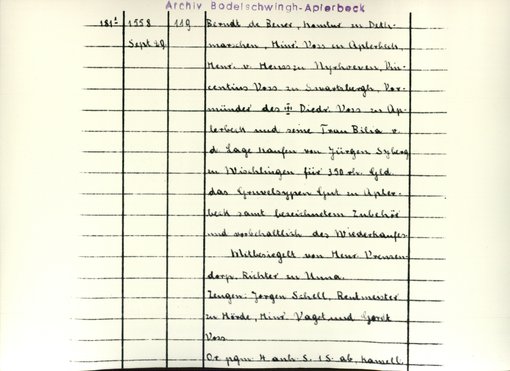 Archiv Bodelschwingh-Aplerbeck
181a 1558 119 Berndt de Bever, Komtur in Deth-
Sept 29 marschen, Hinr. Voss in Aplerbeck,
Henr. v. zu Nyrhoeven, Vin-
centius Voss zu Swartsbergh, Vor-
münder des Diedr. Voss zu Ap-
lerbeck und seine Frau Bilia v.
d. Lage kaufen von Jürgen Syberg
in Wischlingen für 350 rh. Gld.
das Gut in Apler-
beck samt bezeichnetem Zubehör
und vorbehaltlich des Wiederkaufes.
Mitbesiegelt von Henr.
dorp, Richter in Unna.
Zeugen: Jorgen Schell, Rentmeister
zu Hörde, Hinr. Vaget und Gordt
Voss
Or. pgm. 4 anh. S. 1 S. ab, Kamell.